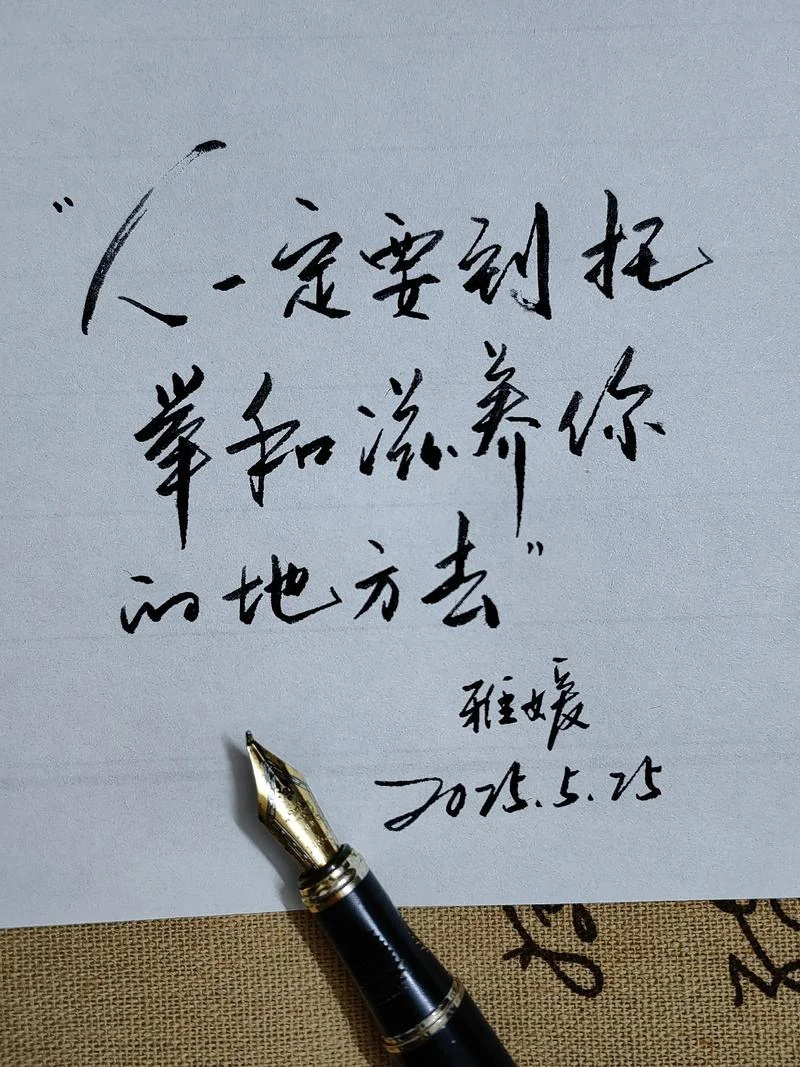 “人一定要到托
举和滋养你
的地方去”
雅媛
2025.5.25